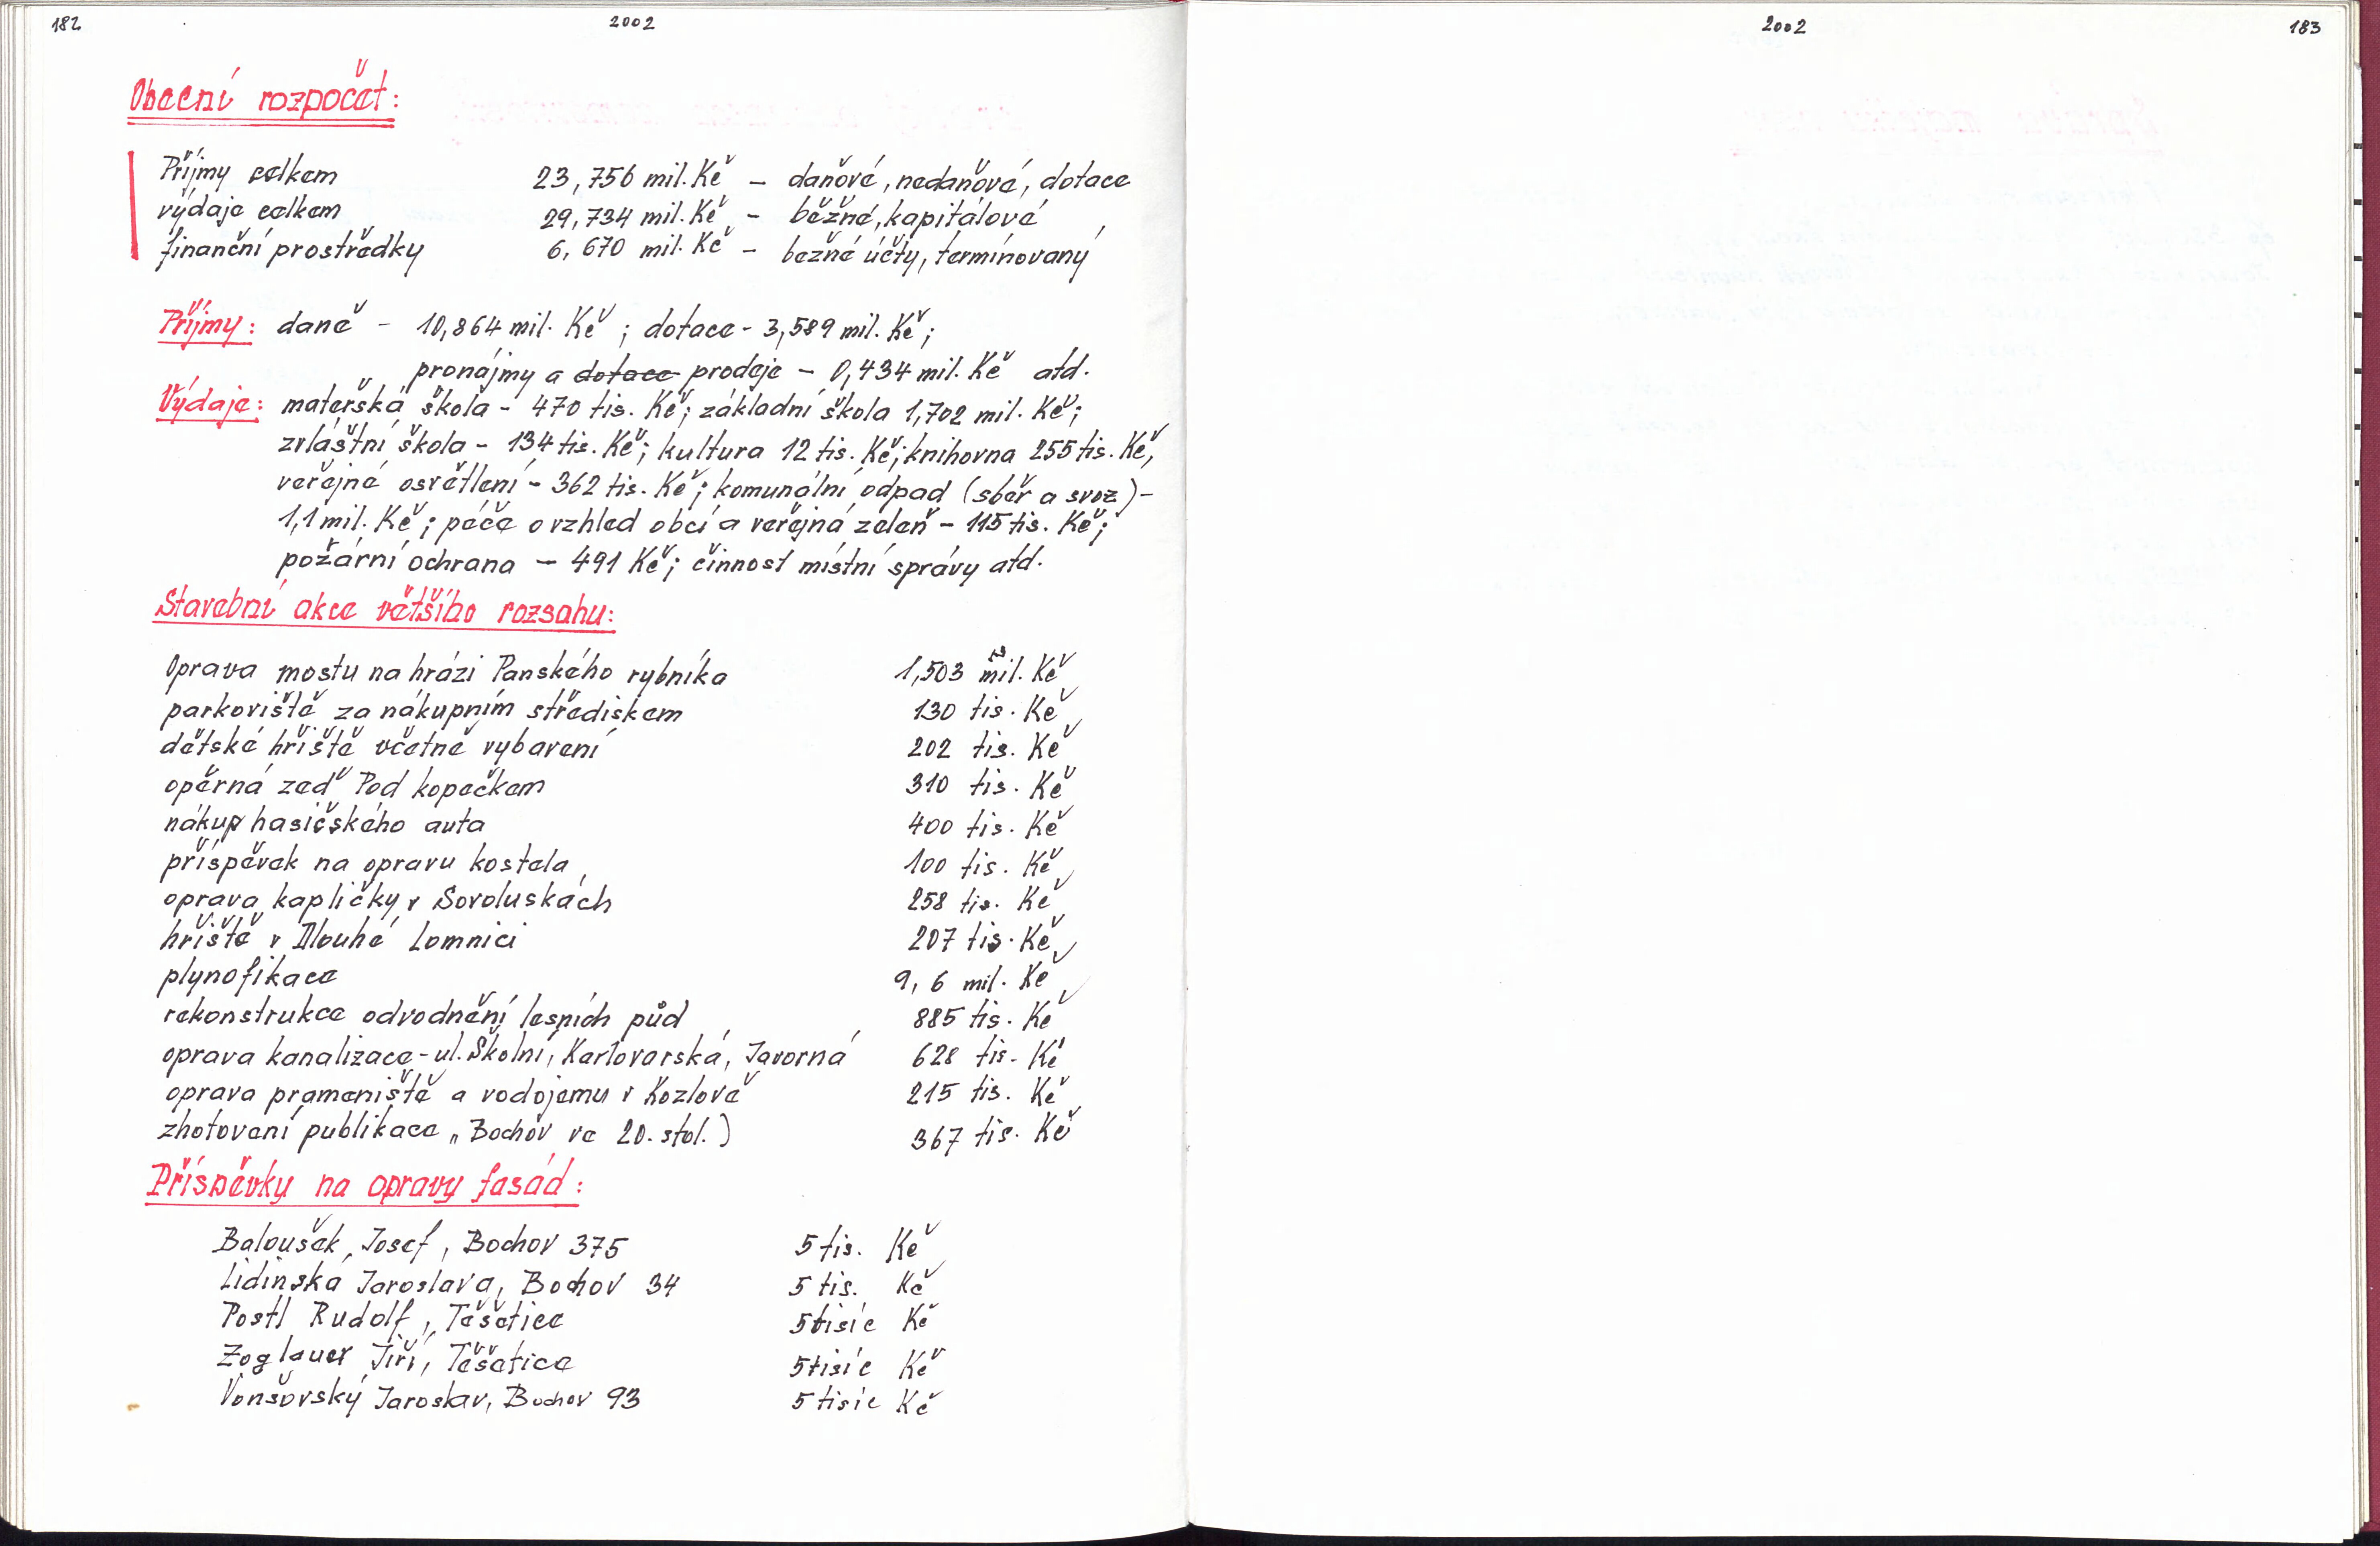 182
2002
Obecní rozpočet:
Příjmy celkem 23,756 mil. Kč – daňové, nedaňové, dotace
výdaje celkem 29,734 mil. Kč – běžné, kapitálové
finanční prostředky 6,670 mil. Kč – bežné účty, termínovaný
Příjmy: daně – 10,864 mil. Kč; dotace - 3,589 mil. Kč;
pronájmy a dotace prodeje – 0,434 mil. Kč atd.
Výdaje: mateřská škola - 470 tis. Kč; základní škola 1,702 mil. Kč;
zvláštní škola - 134 tis. Kč; kultura 12 tis. Kč; knihovna 255 tis. Kč,
veřejné osvětlení - 362 tis. Kč; komunální odpad (sběr a svoz) -
1,1 mil. Kč; péče o vzhled obcí a veřejná zeleň - 115 tis. Kč;
požární ochrana – 491 Kč; činnost místní správy atd.
Stavební akce většího rozsahu:
Oprava mostu na hrázi Panského rybníka 1,503 mil. Kč
parkoviště za nákupním střediskem 130 tis. Kč
dětské hřiště včetně vybavení 202 tis. Kč
opěrná zeď Pod kopečkem 310 tis. Kč
nákup hasičského auta 400 tis. Kč
příspěvek na opravu kostela 100 tis. Kč
oprava kapličky v Sovoluskách 258 tis. Kč
hřiště v Dlouhé Lomnici 207 tis. Kč
plynofikace 9,6 mil. Kč
rekonstrukce odvodnění lesních půd 885 tis. Kč
oprava kanalizace - ul. Školní, Karlovarská, Javorná 628 tis. Kč
oprava prameniště a vodojemu v Kozlově 215 tis. Kč
zhotovení publikace „Bochov ve 20. stol.) 367 tis. Kč
Příspěvky na opravy fasád:
Baloušek Josef, Bochov 375 5 tis. Kč
Lidinská Jaroslava, Bochov 34 5 tis. Kč
Postl Rudolf, Těšetice 5 tisíc Kč
Zoglauer Jiří, Těšetice 5 tisíc Kč
Vonšovský Jaroslav, Bochov 93 5 tisíc Kč
2002
183